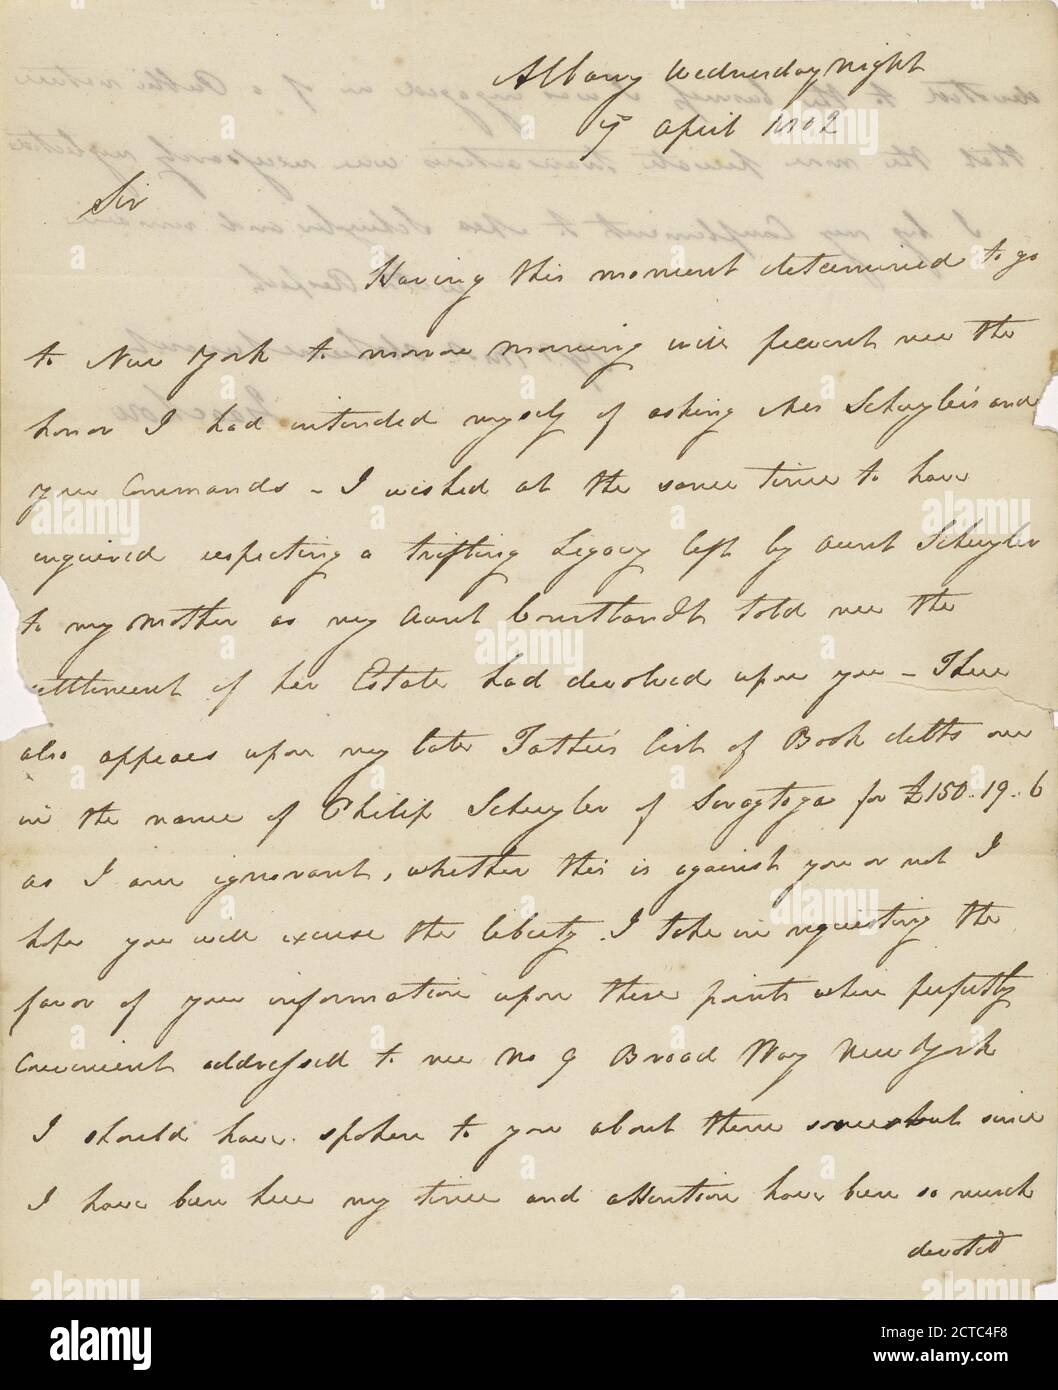 Albany Wednesday night
7 April 1802
Sir
Having this moment determined to go
to New York to morrow morning will prevent me the
honor I had intended myself of asking Mrs Schuyler's and
your Commands - I wished at the same time to have
inquired respecting a trifling Legacy left by Aunt Schuyler
to my Mother as my Aunt Courtlandt told me the
settlement of her Estate had devolved upon you - There
also appears upon my late Father's list of Book debts one
in the name of Philip Schuyler of Saragtoga for £150.19.6
as I am ignorant, whether this is against you or not I
hope you will excuse the liberty I take in requesting the
favor of your information upon these points when perfectly
Convenient addressed to me No 9 Broad Way New York
I should have spoken to you about them some but since
I have been here my time and attention have been so much
devoted
alamy
Image ID: 2CTC4F8
www.alamy.com